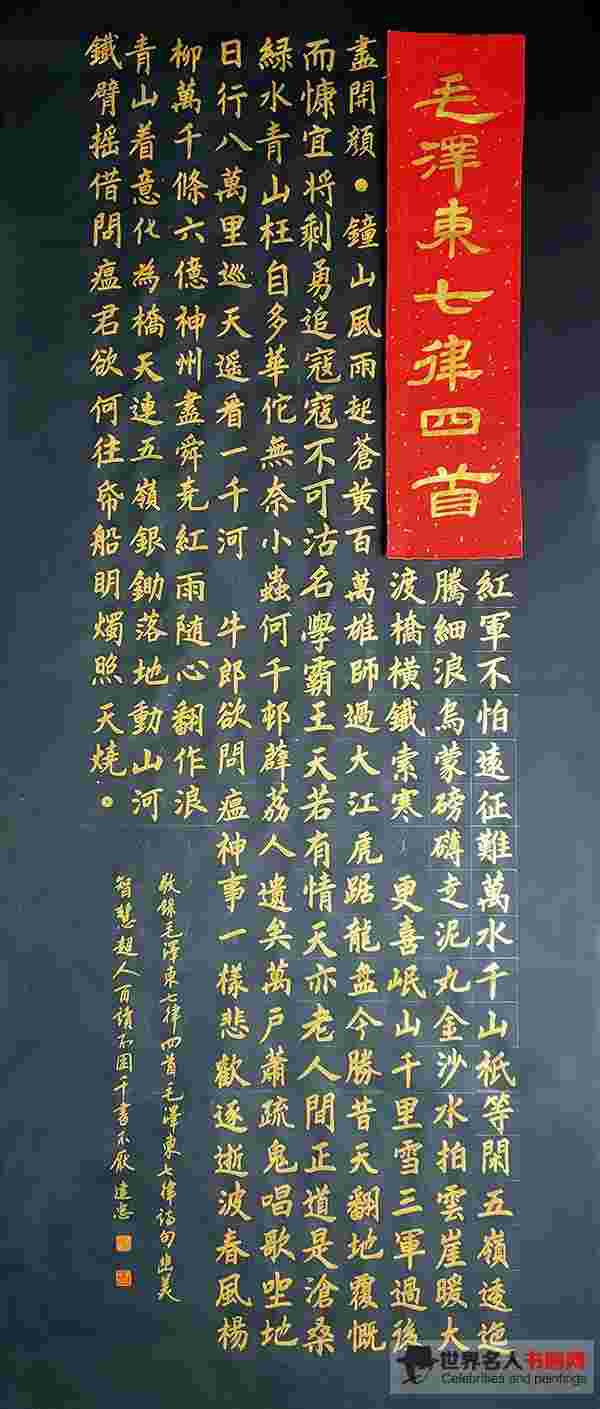 毛澤東七律四首
紅軍不怕遠征難萬水千山祇等閑五嶺逶迤
騰細浪烏蒙磅礴走泥丸金沙水拍雲崖暖大
渡橋橫鐵索寒 更喜岷山千里雪三軍過後
盡開顏。鐘山風雨起蒼黃百萬雄師過大江虎踞龍盘今勝昔天翻地覆慨
而慷宜將剩勇追寇寇不可沽名學霸王天若有情天亦老人間正道是滄桑
綠水青山枉自多華佗無奈小蟲何千邨薜荔人遺矣萬戶蕭疏鬼唱歌坐地
日行八萬里巡天遥看一千河 牛郎欲問瘟神事一樣悲歡逐逝波春風楊
柳萬千條六億神州盡舜堯紅雨随心翻作浪
青山着意化為橋天連五嶺銀鋤落地動山河
鐵臂摇借問瘟君欲何往帋船明燭照天燒。
敬錄毛澤東七律四首毛澤東七律詩句幽美
智慧超人百讀不困千書不厭
世界名人书画网
Celebrities and paintings